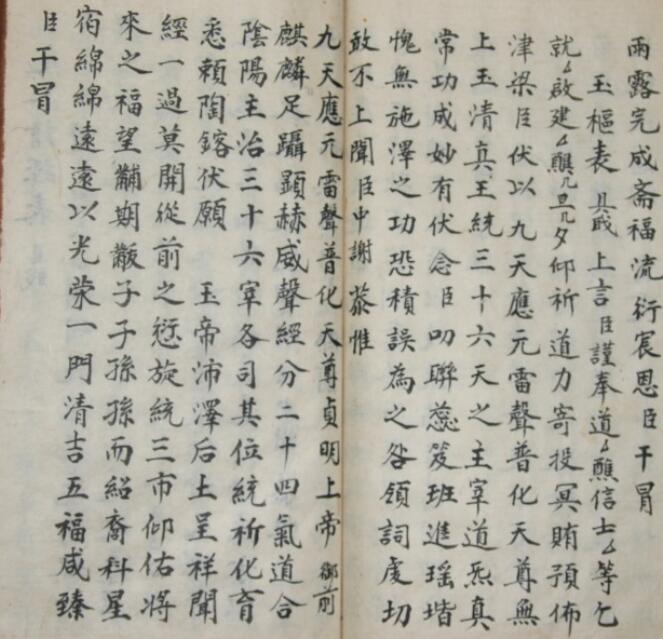 雨露完成斋福流衍宸恩臣干冒
玉樞表 具 上言臣謹奉道厶醮信士厶等乞
就厶啟建厶醮几旦几夕仰祈道力寄投冥賄預佈
津梁臣伏以九天應元雷聲普化天尊無
上玉清真王統三十六天之主宰道炁真
常功成妙有伏念臣叨聯蕊笈班進瑤堦
愧無施澤之功恐積誤為之咎領詞虔切
敢不上聞臣中謝恭惟
九天應元雷聲普化天尊貞明上帝御前
麒麟足躡顯赫威聲經分二十四氣道合
陰陽主治三十六宰各司其位統祈化育
悉賴陶鎔伏願 玉帝沛澤后土呈祥聞
經一過莫開從前之愆旋統三市仰佑將
來之福望黼期黻子子孫孫而紹裔科星
宿綿綿遠遠以光荣一門清吉五福咸臻
臣干冒